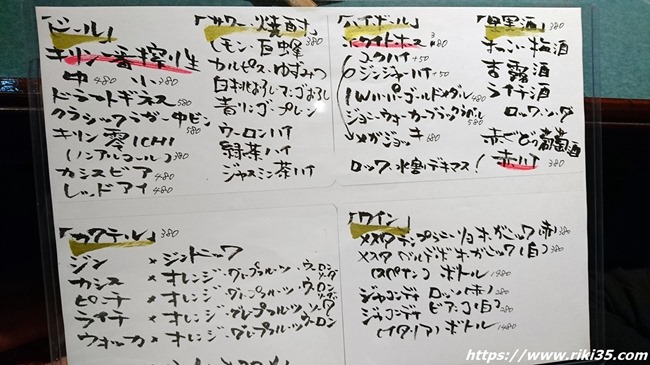 「ビール」
キリン一番搾り生
中 480 小 380
ドラフトギネス 580
クラシックラガー中ビン 580
キリン 零ICHI
(ノンアルコール) 380
カシスビア 480
レッドアイ 480
「サワー・焼酎」 380
レモン・巨峰
カルピス・ゆずみつ
白桃おろし・マンゴおろし
青リンゴ・プレーン
ウーロンハイ
緑茶ハイ
ジャスミン茶ハイ
「ハイボール」
ホワイトホース 380
コークハイ +50
ジンジャーハイ +50
I.W.ハーパーゴールドメダル 480
ジョニーウォーカーブラックラベル 580
メガジョッキ 680
ロック・水割デキマス!
「果実酒」 380
梅酒
杏露酒
ライチ酒
ロック・ソーダ
赤ぶどう葡萄酒
赤ハイ 380
「カクテル」 380
ジン × ジントニック
カシス × オレンジ・グレープフルーツ・ウーロン・ソーダ
ピーチ × オレンジ・グレープフルーツ・ウーロン・ソーダ
ライチ × オレンジ・グレープフルーツ・ソーダ
ウォッカ × オレンジ・グレープフルーツ・ウーロン
「ワイン」
メスタ テンプラニーリョ オーガニック(赤) 380
メスタ ベルデホ オーガニック(白) 380
(スペイン) ボトル 1980
ジャコンデイ ロッソ(赤) 280
ジャコンデイ ビアンコ(白) 280
(イタリア) ボトル 1480
https://www.riki35.com/